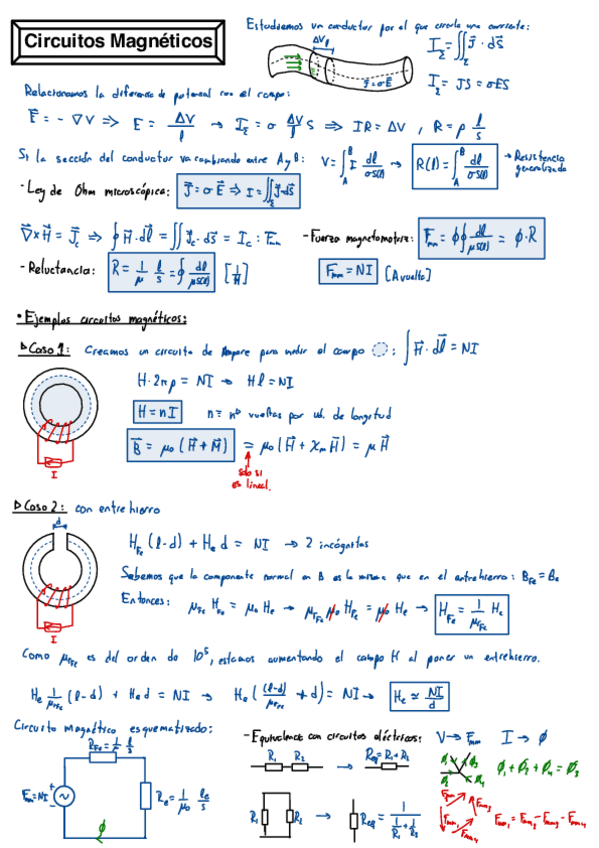 Circuitos Magnéticos
Estudiaremos un conductor por el que circula una corriente:
ΔV_l
J⃗ = σE⃗
I_Σ = ∬_Σ J⃗ · dS⃗
I_Σ = JS = σES
Relacionamos la diferencia de potencial con el campo:
E⃗ = -∇V ⟹ E = ΔV/l → I_Σ = σ ΔV/l S ⟹ IR = ΔV , R = ρ l/s
Si la sección del conductor va cambiando entre A y B: V = ∫_A^B I dl/σS(l) → R(l) = ∫_A^B dl/σS(l) → Resistencia generalizada
- Ley de Ohm microscópica: J⃗ = σE⃗ ⟹ I = ∬_Σ J⃗·dS⃗
∇⃗×H⃗ = J⃗_c ⟹ ∮ H⃗·dl⃗ = ∬ J⃗_c·dS⃗ = I_c : F_mm
- Fuerza magnetomotriz: F_mm = ϕ∮ dl/μS(l) = ϕ·R
- Reluctancia: R = 1/μ l/s = ∮ dl/μS(l) [1/H]
F_mm = NI [A vuelta]
• Ejemplos circuitos magnéticos:
▷ Caso 1: Creamos un circuito de Ampere para medir el campo : ∫ H⃗·dl⃗ = NI
H·2πρ = NI → Hl = NI
H = nI n = nº vueltas por ud. de longitud
B⃗ = μ₀(H⃗ + M⃗) = μ₀(H⃗ + χ_m H⃗) = μH⃗
I
sólo si
es lineal.
▷ Caso 2: con entrehierro
d
H_Fe (l-d) + H_e d = NI → 2 incógnitas
Sabemos que la componente normal en B es la misma que en el entrehierro: B_Fe = B_e
Entonces: μ_Fe H_Fe = μ₀ H_e → μ_rFe μ₀ H_Fe = μ₀ H_e → H_Fe = 1/μ_rFe H_e
I
Como μ_rFe es del orden de 10⁵, estamos aumentando el campo H al poner un entrehierro.
H_e 1/μ_rFe (l-d) + H_e d = NI → H_e ((l-d)/μ_rFe + d) = NI → H_e ≃ NI/d
Circuito magnético esquematizado:
- Equivalencia con circuitos eléctricos: V → F_mm I → ϕ
R_Fe = 1/μ l/s
F_mm = NI
R_e = 1/μ₀ l_e/s
ϕ
R₁ R₂ → R_eq = R₁ + R₂
ϕ₁ ϕ₂ ϕ₃ ϕ₄
ϕ₁ + ϕ₂ + ϕ₄ = ϕ₃
R₁ R₂ → R_eq = 1/(1/R₁ + 1/R₂)
F_mm₁ F_mm₂ F_mm₃ F_mm₄
F_mm₁ = F_mm₂ - F_mm₃ - F_mm₄